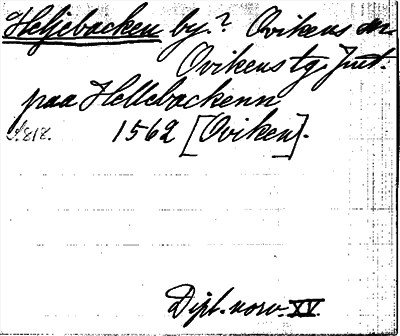 Heljebacken by? Ovikens sn
Ovikens tg. Jmt.
paa Hellebackenn
S. 818. 1562 [Oviken].
Dipl. norv. XV.